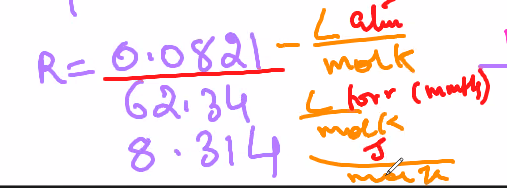 R = 0.0821 - L atm / mol K
62.34 L torr (mmHg) / mol K
8.314 J / mol K